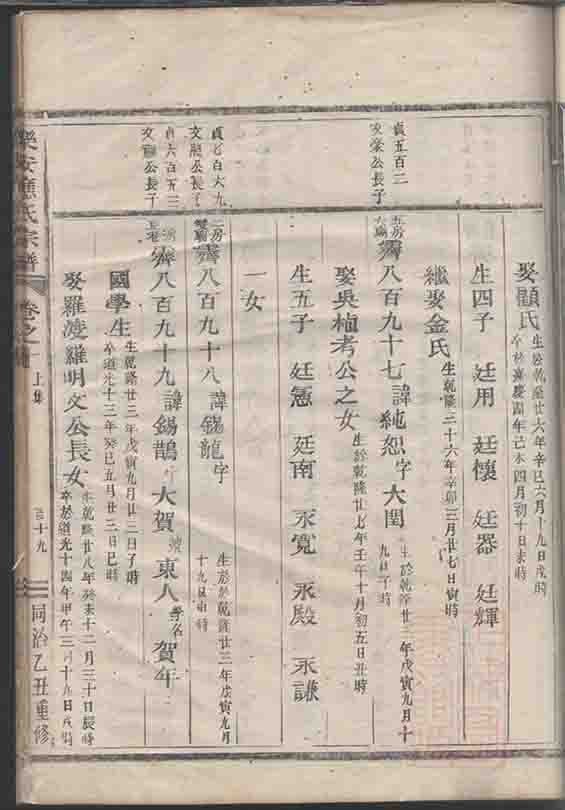 娶顧氏
生於乾隆廿六年辛巳六月十九日戌時
卒於嘉慶四年己未四月初十日未時
生四子 廷用 廷懷 廷器 廷輝
繼娶金氏
生乾隆三十六年辛卯三月廿七日寅時
貞五百三
文榮公長子
五房
齊八百九十七諱純恕字大閏
生於乾隆廿三年戊寅九月十
九日午時
娶吳楨考公之女
生於乾隆廿七年壬午十月初五日丑時
生五子 廷憲 廷南 永寬 永殿 永謙
一女
貞七百六九
文熙公長子
二房
齊八百九十八諱錫龍字
生於乾隆廿三年戊寅九月
十九日申時
貞六百五三
文公長子
齊八百九十九諱錫鵲字大賀號東人 學名賀年
國學生
生乾隆廿三年戊寅九月廿三日子時
卒道光十三年癸巳五月廿三日巳時
娶羅渡羅明文公長女
生乾隆廿八年癸未十二月三十日辰時
卒於道光十四年甲午三月十九日戌時
樂安應氏宗譜
卷之
上集
十九
同治乙丑重修